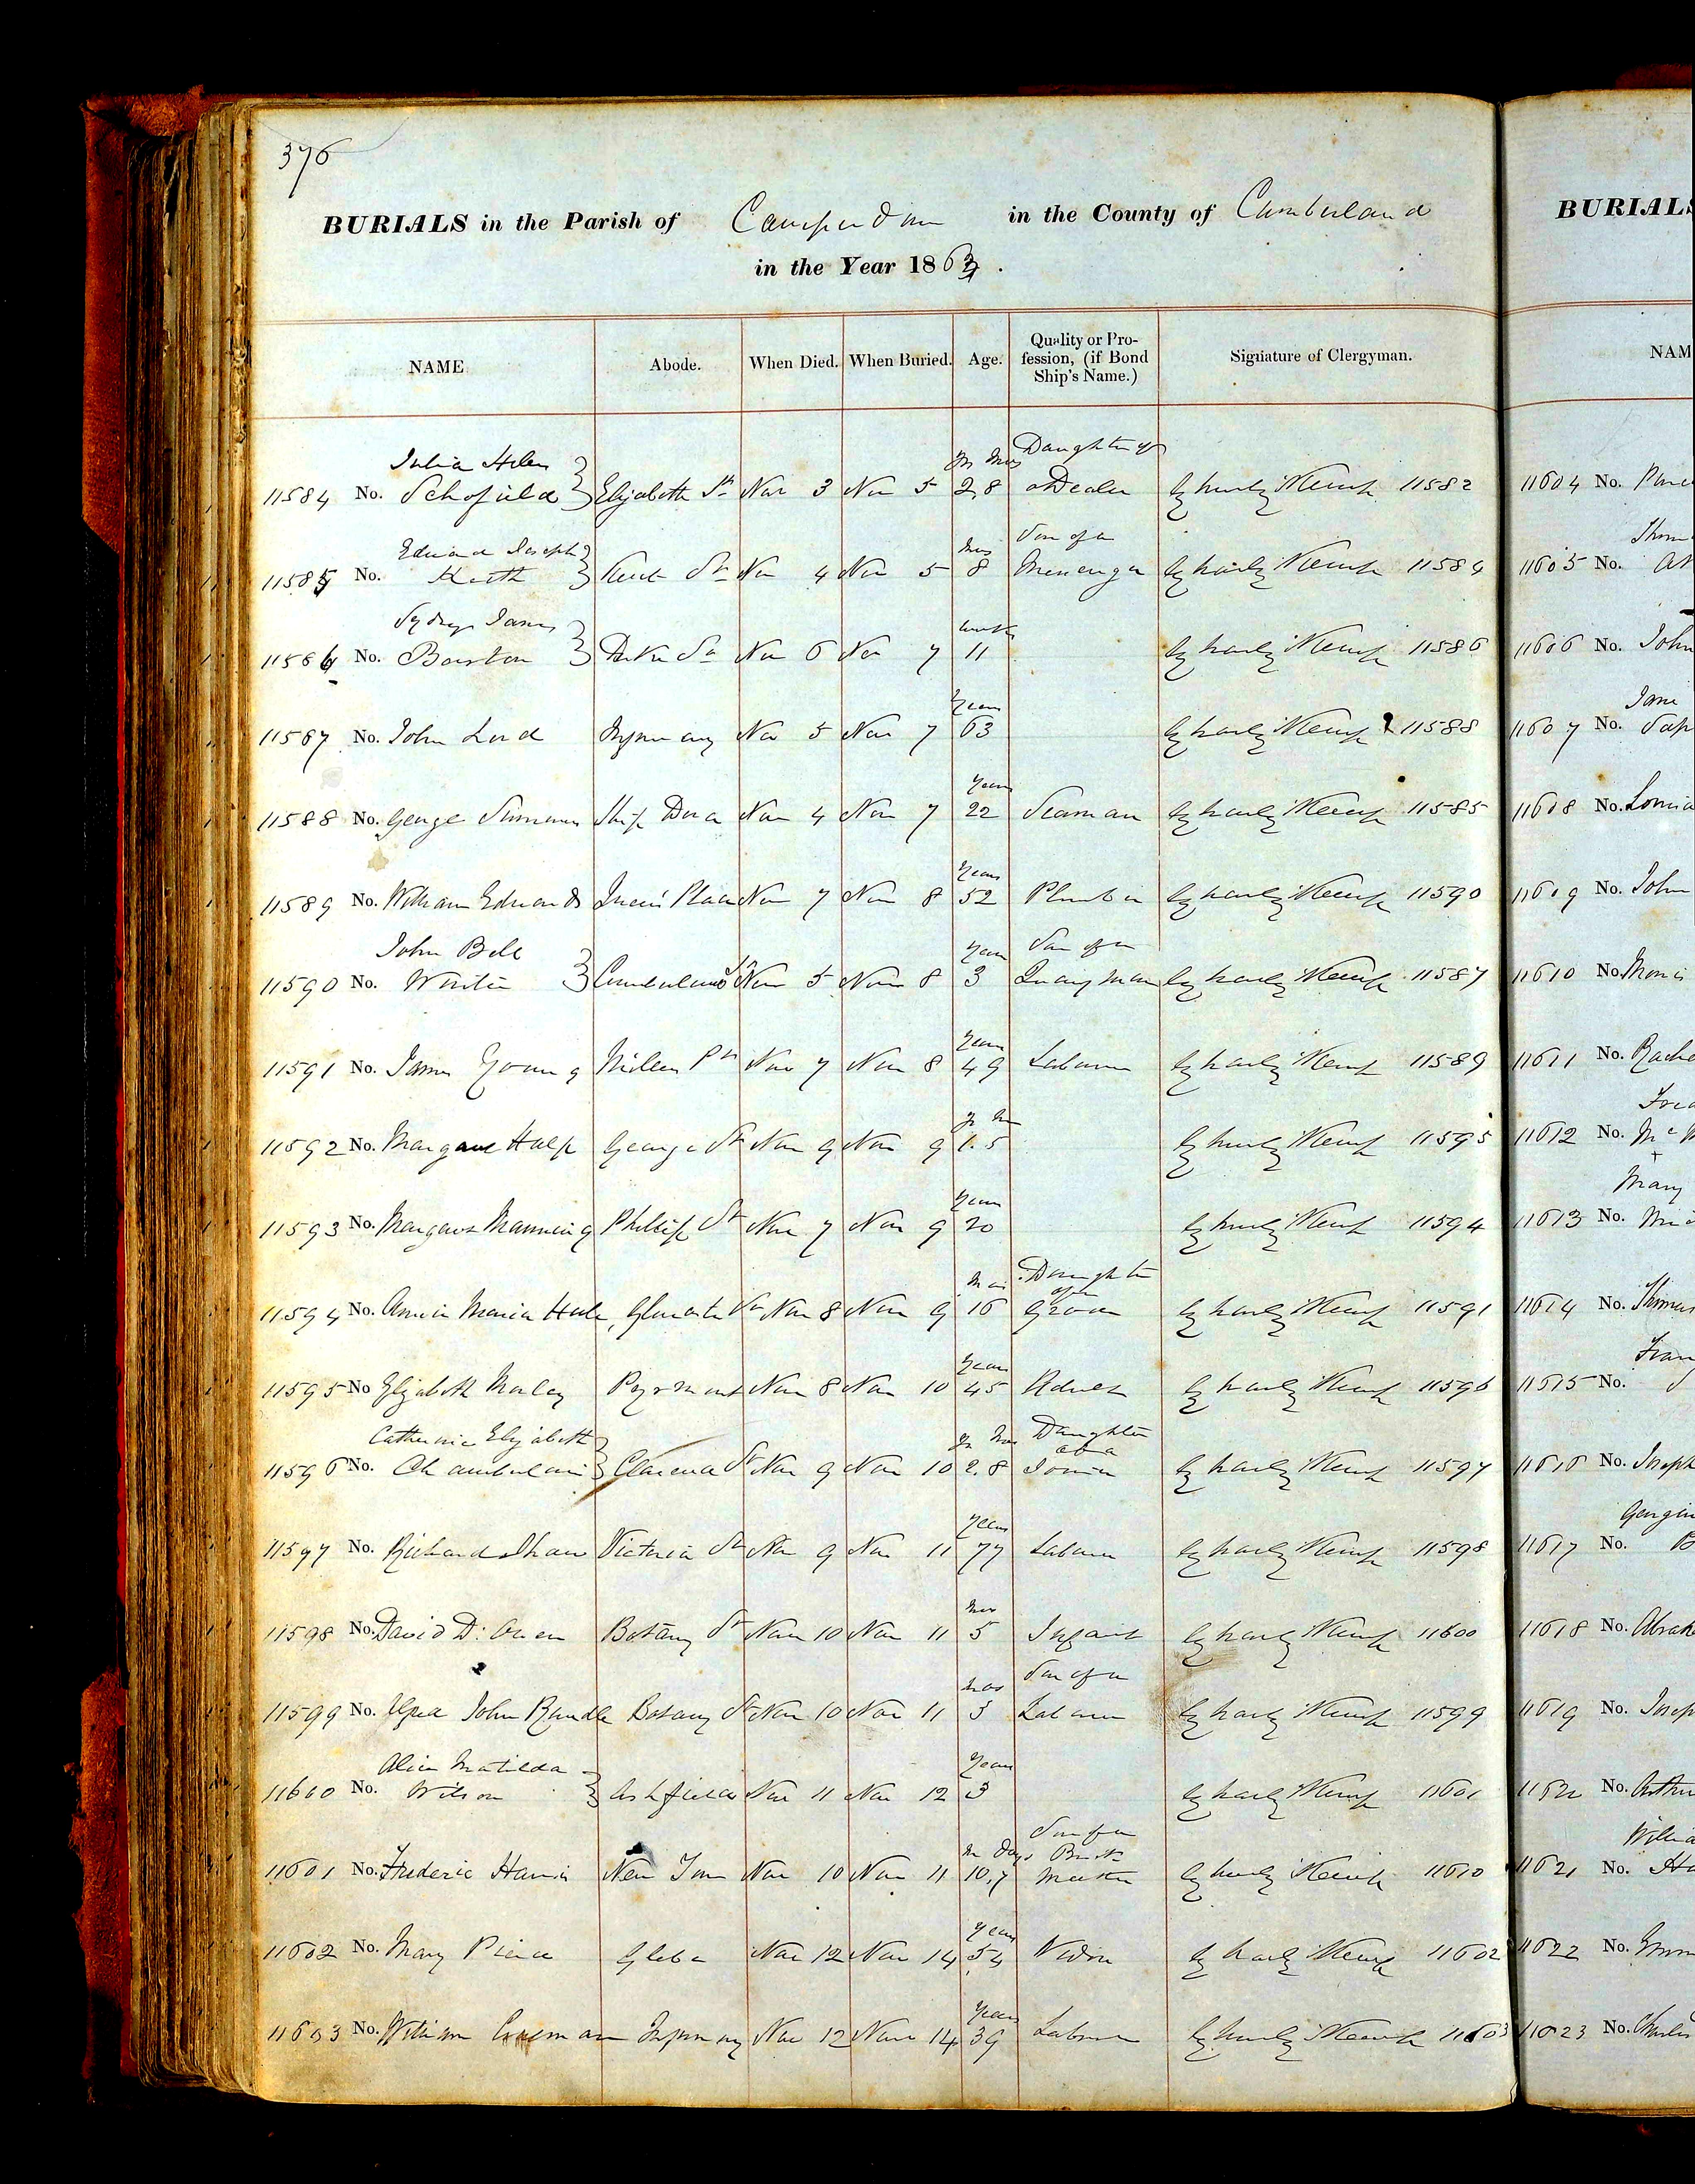 376
BURIALS in the Parish of Camperdown in the County of Cumberland
in the Year 1863.
BURIALS
NAME Abode. When Died. When Buried. Age. Quality or Pro-
fession, (if Bond
Ship's Name.) Signature of Clergyman.
NAM
Julia Helen Yrs Mos Daughter of
11584 No. Schofield Elizabeth St Nov 3 Nov 5 2,8 a Dealer Charles Kemp 11582
Edward Joseph Mos Son of a
11585 No. Keith Kent St Nov 4 Nov 5 8 Messenger Charles Kemp 11584
Sydney James weeks
11586 No. Barton Duke St Nov 6 Nov 7 11 Charles Kemp 11586
Years
11587 No. John Lord Infirmary Nov 5 Nov 7 63 Charles Kemp 11588
Years
11588 No. George Simmons Ship Dora Nov 4 Nov 7 22 Seaman Charles Kemp 11585
Years
11589 No. William Edwards Queen's Place Nov 7 Nov 8 52 Plumber Charles Kemp 11590
John Bell Years Son of a
11590 No. Winter Cumberland St Nov 5 Nov 8 3 Quarryman Charles Kemp 11587
Years
11591 No. James Young Millers Pt Nov 7 Nov 8 49 Labourer Charles Kemp 11589
Yr Mos
11592 No. Margaret Halp George St Nov 9 Nov 9 1.5 Charles Kemp 11595
Years
11593 No. Margaret Manning Phillip St Nov 7 Nov 9 20 Charles Kemp 11594
Mos Daughter
of a
11594 No. Annie Maria Hale, Gloucester St Nov 8 Nov 9 16 Groom Charles Kemp 11591
Years
11595 No Elizabeth Morley Pyrmont Nov 8 Nov 10 45 Charles Kemp 11596
Catherine Elizabeth Yrs Mos Daughter
of a
11596 No. Chamberlain Clarence St Nov 9 Nov 10 2.8 Joiner Charles Kemp 11597
Years
11597 No. Richard Shaw Victoria St Nov 9 Nov 11 77 Labourer Charles Kemp 11598
Mos
11598 No. David D. Owen Botany St Nov 10 Nov 11 5 Infant Charles Kemp 11600
Mos Son of a
11599 No. John Randle Botany St Nov 10 Nov 11 3 Labourer Charles Kemp 11599
Alice Matilda Years
11600 No. Wilson Ashfield Nov 11 Nov 12 3 Charles Kemp 11601
Son of a
M Days Brick
11601 No. Frederic Harris New Town Nov 10 Nov 11 10,7 maker Charles Kemp 11610
Years
11602 No. Mary Pierce Glebe Nov 12 Nov 14 54 Widow Charles Kemp 11602
Years
11603 No. William Infirmary Nov 12 Nov 14 39 Labourer Charles Kemp 11603
11604 No.
11605 No.
11606 No. John
Jane
11607 No.
11608 No. Louisa
11609 No. John
11610 No.
11611 No. Rache
11612 No.
Mary
11613 No.
11614 No. Thomas
11615 No.
11616 No. Joseph
11617 No.
11618 No. Abrah
11619 No. Josep
11620 No. Arthu
Willia
11621 No.
11622 No.
11623 No. Charles